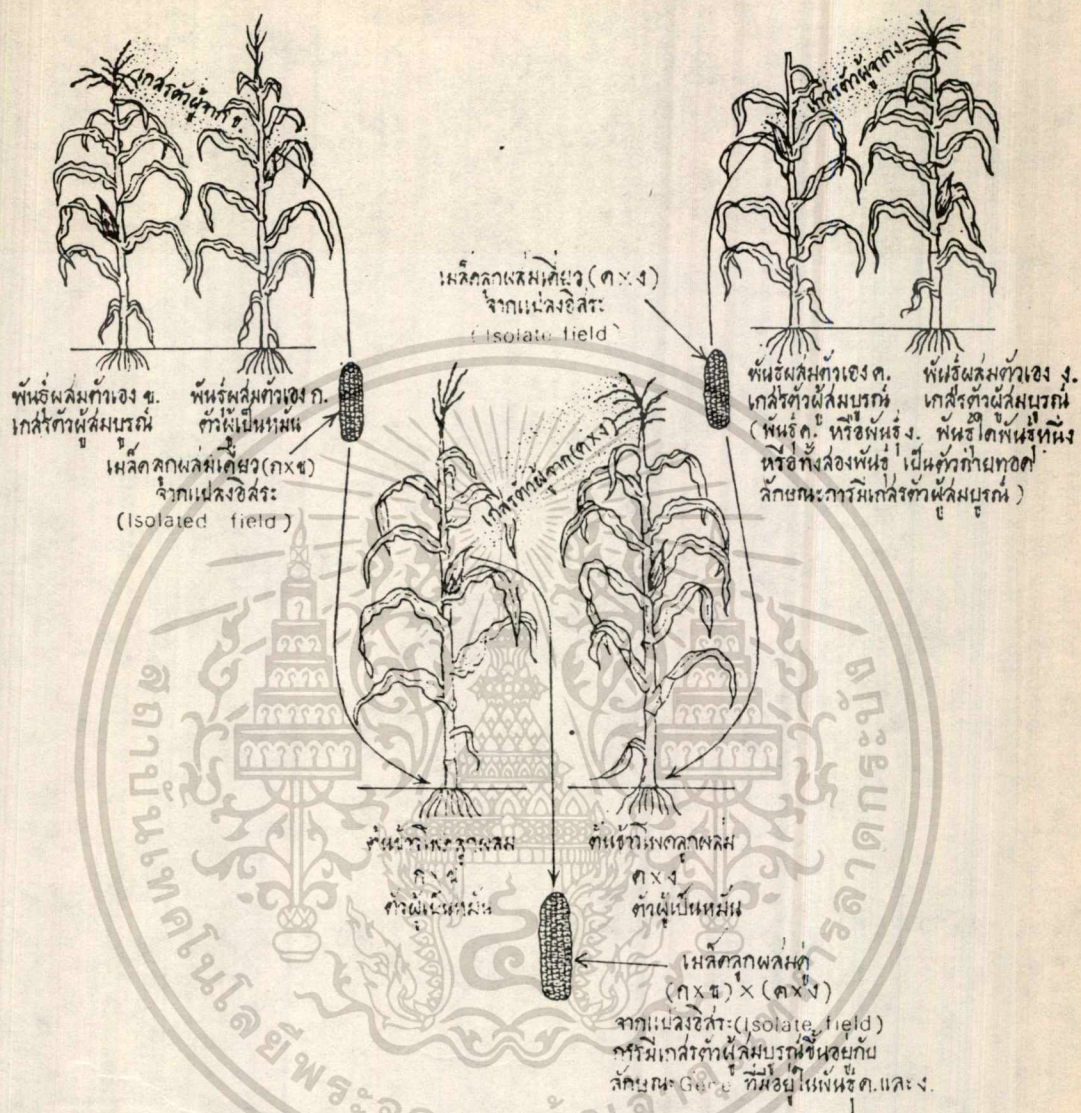 เกสรตัวผู้จาก ข.
เกสรตัวผู้จาก ง.
เมล็ดลูกผสมเดี่ยว (ค×ง)
จากแปลงอิสระ
(Isolate field)
พันธุ์ผสมตัวเอง ข.
เกสรตัวผู้สมบูรณ์
พันธุ์ผสมตัวเอง ก.
ตัวผู้เป็นหมัน
เมล็ดลูกผสมเดี่ยว (ก×ข)
จากแปลงอิสระ
(Isolated field)
พันธุ์ผสมตัวเอง ค.
เกสรตัวผู้สมบูรณ์
พันธุ์ผสมตัวเอง ง.
เกสรตัวผู้สมบูรณ์
(พันธุ์ค. หรือพันธุ์ง. พันธุ์ใดพันธุ์หนึ่ง
หรือทั้งสองพันธุ์ เป็นตัวถ่ายทอด
ลักษณะการมีเกสรตัวผู้สมบูรณ์)
เกสรตัวผู้จาก (ค×ง)
ต้นข้าวโพดลูกผสม
ก×ข
ตัวผู้เป็นหมัน
ต้นข้าวโพดลูกผสม
ค×ง
ตัวผู้เป็นหมัน
เมล็ดลูกผสมคู่
(ก×ข) × (ค×ง)
จากแปลงอิสระ (Isolate field)
การมีเกสรตัวผู้สมบูรณ์ขึ้นอยู่กับ
ลักษณะ Gene ที่มีอยู่ในพันธุ์ ค. และ ง.
สถาบันเทคโนโลยีพระจอมเกล้า
เจ้าคุณทหารลาดกระบัง